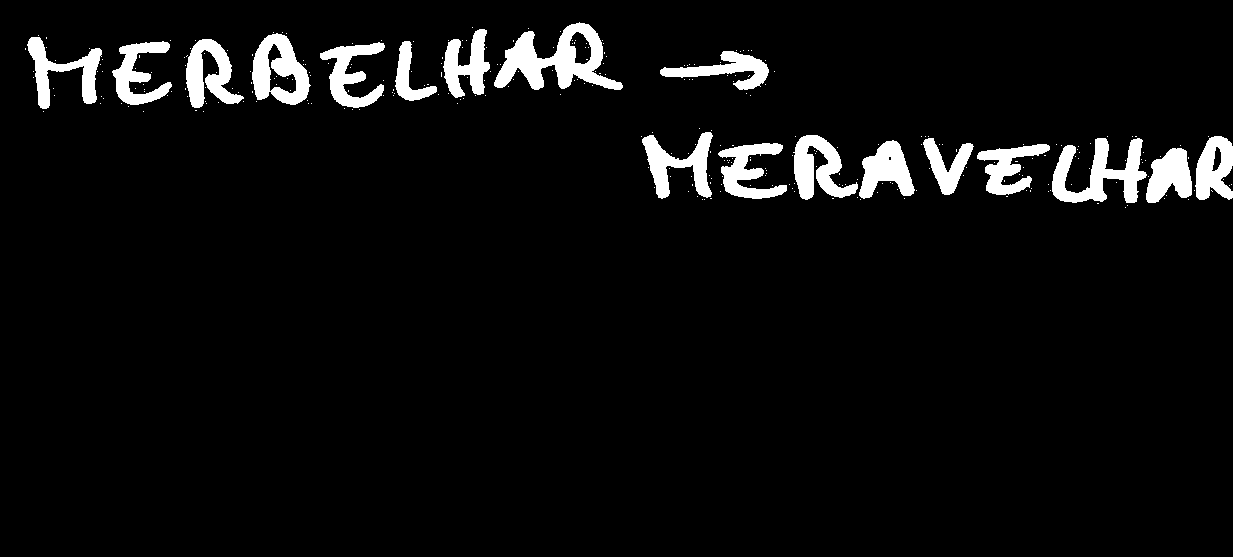 MERBELHAR →
MERAVELHAR